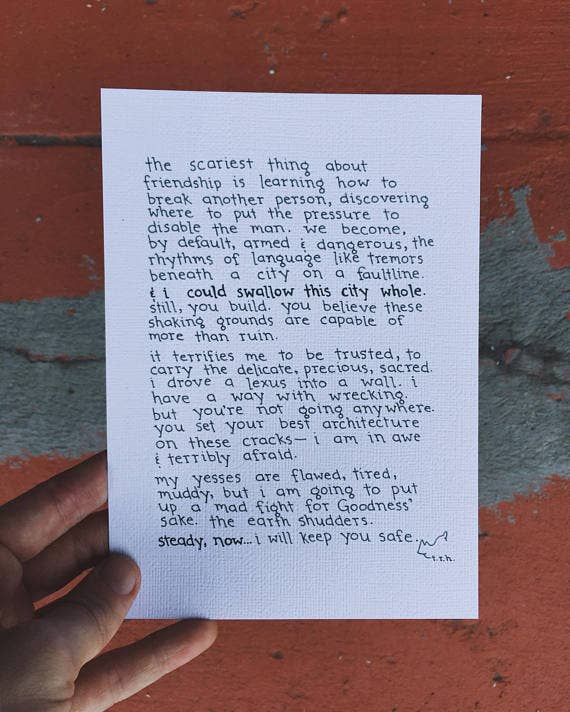 the scariest thing about
friendship is learning how to
break another person, discovering
where to put the pressure to
disable the man. we become,
by default, armed & dangerous, the
rhythms of language like tremors
beneath a city on a faultline.
& i could swallow this city whole.
still, you build. you believe these
shaking grounds are capable of
more than ruin.
it terrifies me to be trusted, to
carry the delicate, precious, sacred.
i drove a lexus into a wall. i
have a way with wrecking.
but you're not going anywhere.
you set your best architecture
on these cracks— i am in awe
& terribly afraid.
my yesses are flawed, tired,
muddy, but i am going to put
up a mad fight for Goodness'
sake. the earth shudders.
steady, now... i will keep you safe.
t.r.h.